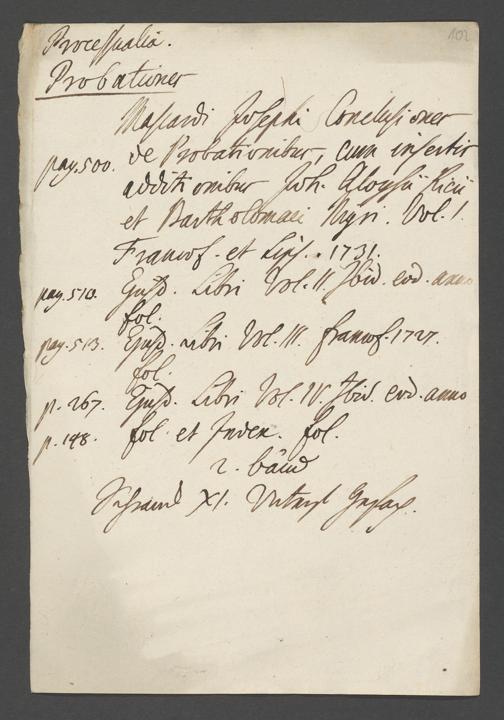 102
Processualia.
Probationes
Mascardi Josephi Conclusiones
pag. 500. de Probationibus, cum insertis
additionibus Joh. Aloysii Ricii
et Bartholomaei Nigri. Vol. I.
Francof. et Lips. 1731.
pag. 510. Ejusd. Libri Vol. II. Ibid. eod. anno
fol.
pag. 513. Ejusd. Libri Vol. III. Francof. 1727.
fol.
p. 267. Ejusd. Libri Vol. IV. Ibid. eod. anno
p. 198. fol. et Index. fol.
2. bänd
XI.